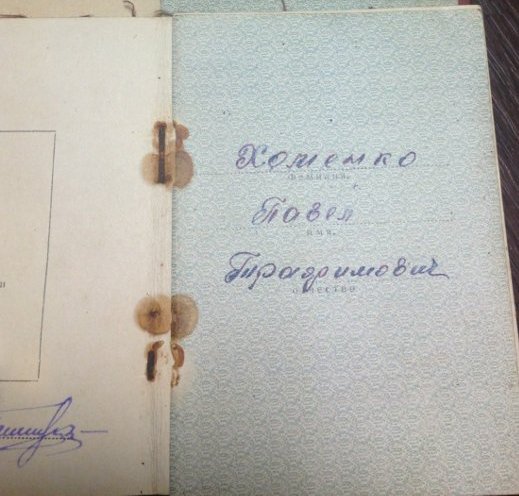 Хоменко
фамилия
Павел
имя
Трафимович
отчество